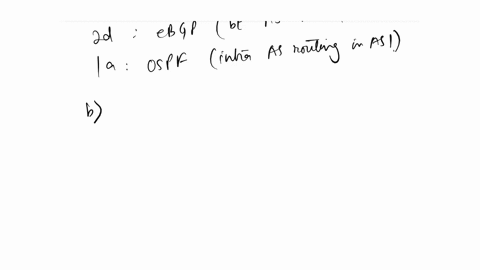 2d : eBGP (bt
1a : OSPF (intra AS routing in AS1)
b)